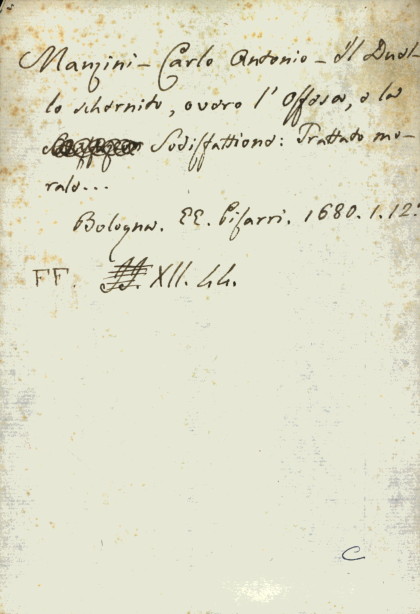 Manzini - Carlo Antonio - Il Duel-
lo schernito, overo l'Offesa, e la
Sodisfattione: Trattato mo-
rale...
Bologna. EE. Pisarri. 1680. 1. 12:
FF. XII. 44.
C